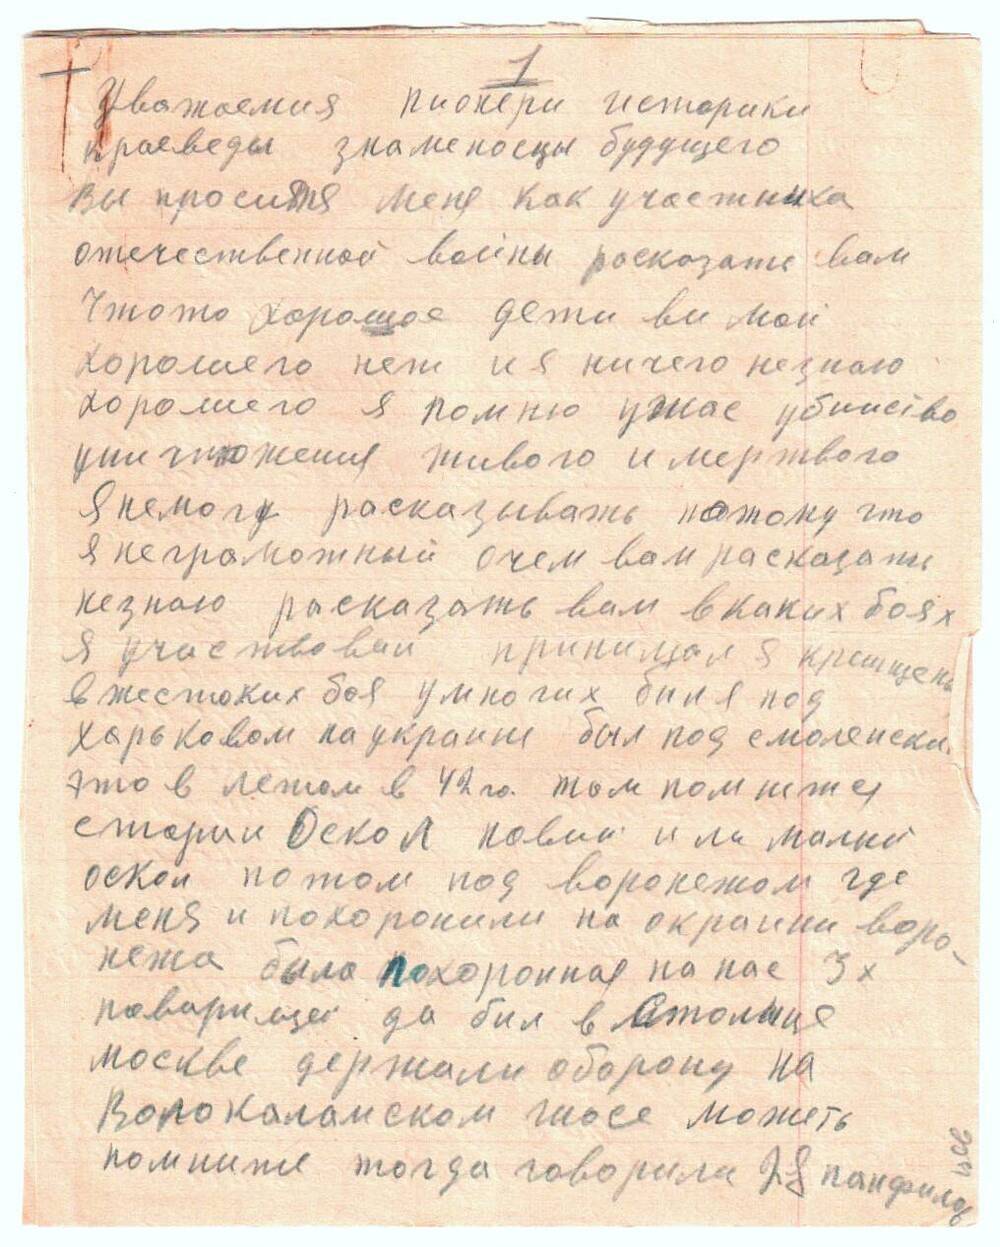 1
Уважаемия пионери историки
краеведы знаменосцы будущего
Вы просития меня как участника
отечественной войны расказати вам
Чтото хорошое дети ви мои
хорошего нет и я ничего незнаю
хорошего я помню ужас убийство
уничтожения живого и мертвого
Я немогу расказывать потому что
я неграмотный очем вам расказати
незнаю расказать вам в каких боях
я участвовал принимал я крещщень
в жестоких боя у многих бил я под
харьковом на украине был под смоленски.
это в летом в 42го. там помните
старии Оскол новий или малий
оскол потом под воронежом где
меня и похоронили на окраини воро-
нежа была похоронная на нас 3х
товарищей да бил в столице
москве держали оборону на
Волокаламском шосе можеть
помните тогда говорили 28 панфилов
цев